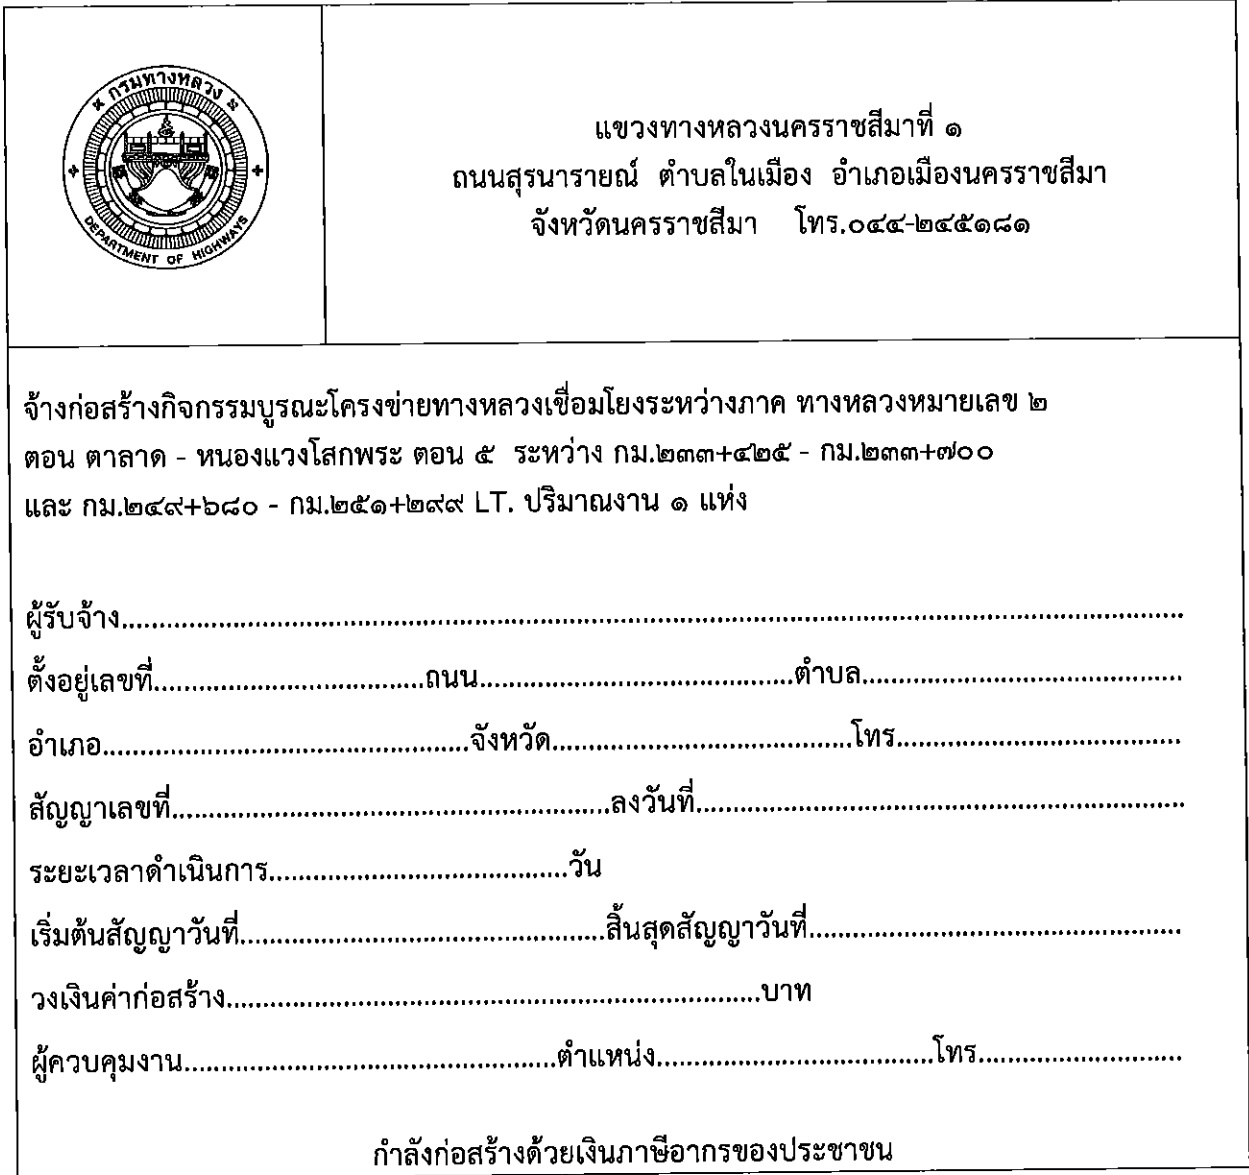 กรมทางหลวง
DEPARTMENT OF HIGHWAYS
แขวงทางหลวงนครราชสีมาที่ ๑
ถนนสุรนารายณ์ ตำบลในเมือง อำเภอเมืองนครราชสีมา
จังหวัดนครราชสีมา โทร.๐๔๔-๒๔๕๑๘๑
จ้างก่อสร้างกิจกรรมบูรณะโครงข่ายทางหลวงเชื่อมโยงระหว่างภาค ทางหลวงหมายเลข ๒
ตอน ตาลาด - หนองแวงโสกพระ ตอน ๕ ระหว่าง กม.๒๓๓+๔๒๕ - กม.๒๓๓+๗๐๐
และ กม.๒๔๙+๖๘๐ - กม.๒๕๑+๒๙๙ LT. ปริมาณงาน ๑ แห่ง
ผู้รับจ้าง....................................................................................................
ตั้งอยู่เลขที่....................................ถนน..........................................ตำบล...........................................
อำเภอ.................................................จังหวัด........................................โทร......................................
สัญญาเลขที่...........................................................ลงวันที่.................................................................
ระยะเวลาดำเนินการ........................................วัน
เริ่มต้นสัญญาวันที่.................................................สิ้นสุดสัญญาวันที่..................................................
วงเงินค่าก่อสร้าง.......................................................................บาท
ผู้ควบคุมงาน..................................................ตำแหน่ง.....................................โทร...........................
กำลังก่อสร้างด้วยเงินภาษีอากรของประชาชน